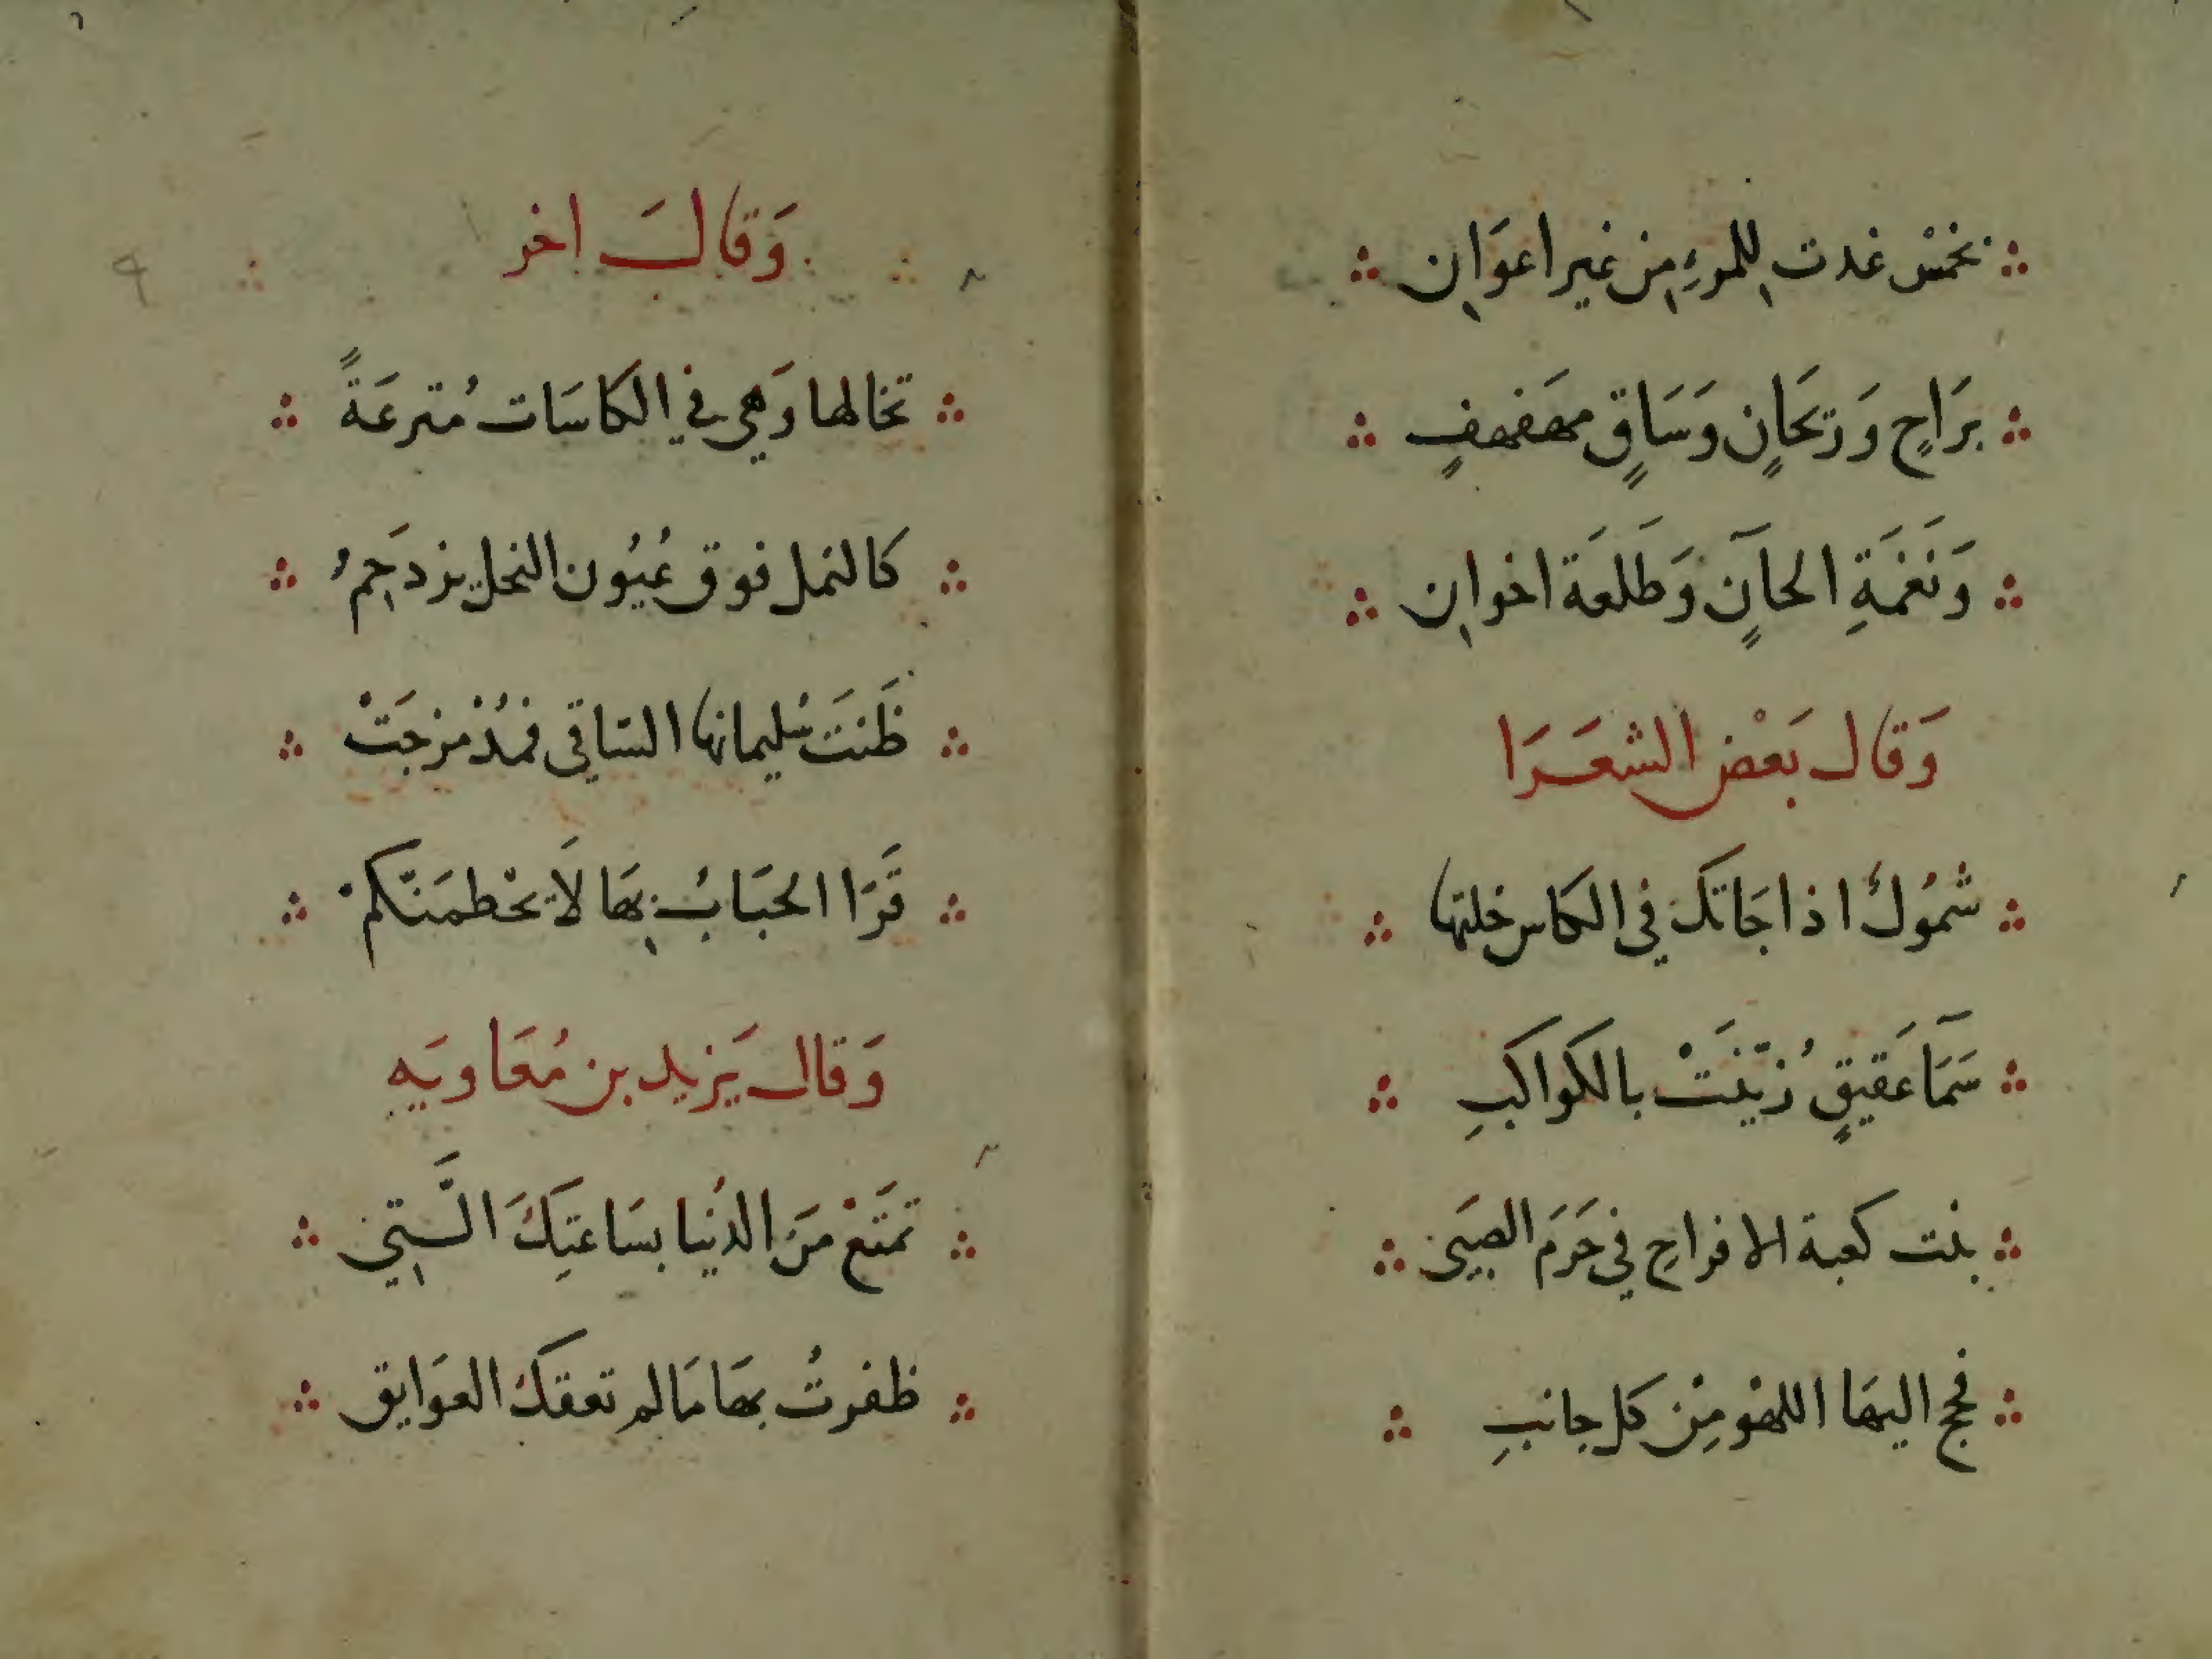 بخمْسٍ غدت لِلمرءِ مِن غير اعوَانِ
برَاحٍ وَرَيحَانٍ وَسَاقٍ مهَفهفٍ
وَنَغمَةِ الحَانٍ وَطَلعَة اخوانِ
وَقال بَعْض الشعَرَا
شمُولٌ اذا جَاتكَ في الكاس خلتها
سَمَا عَقيقٍ زُيّنَتْ بالكواكبِ
بنت كعبة الافراحِ في حَرَم الصبَى
فحج اليهَا اللهْو مِنْ كل جانبِ
وَقالَ اخر
تخالها وَهي في الكاسَات مُترعَةً
كالنمل فوق عُيُون النحل يزدَحِمُ
ظَنتَ سُليمانها السَّاقي فمُذْ مزجَتْ
قَرَا الحبَابُ بِهَا لَا يحْطمَنّكمْ
وَقال يَزيد بن مُعَاويَه
تمَتَّعْ مَن الدُنيا بسَاعَتِكَ الَّتِي
ظفرتُ بهَا مَا لم تعقكَ العوَايق
٩